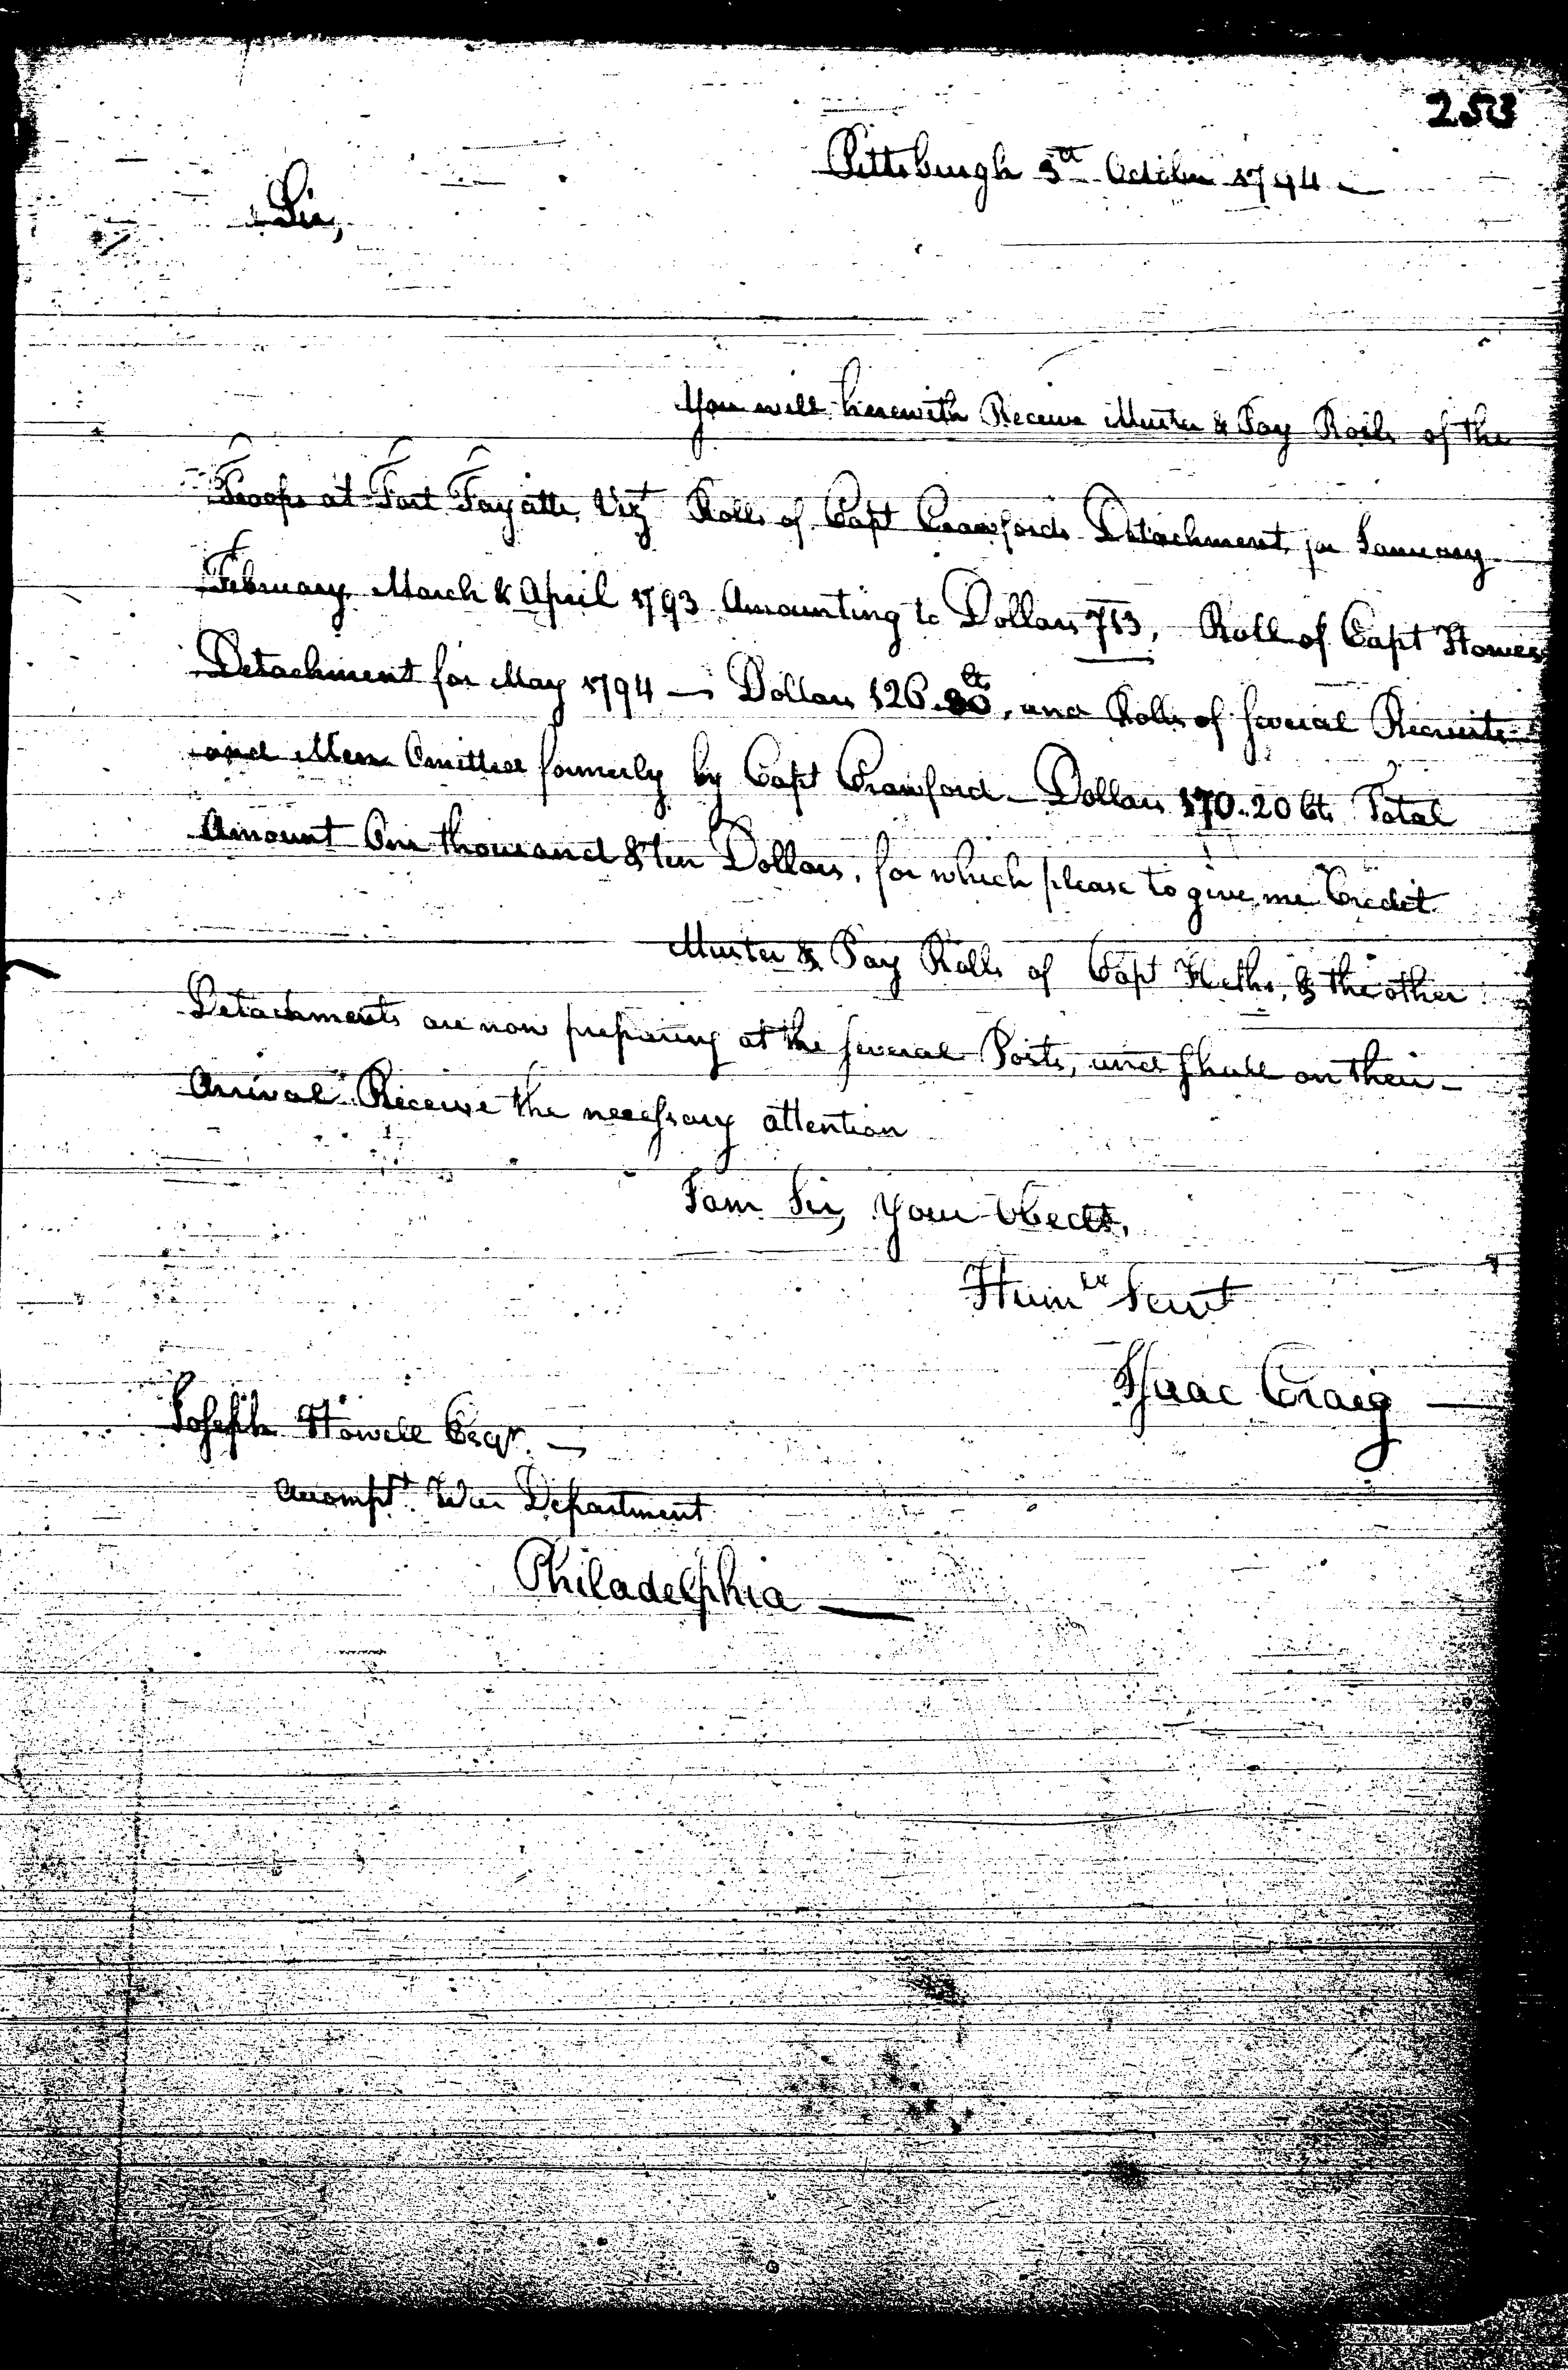 253
Pittsburgh 3d October 1794 —
Sir,
You will herewith Receive Muster & Pay Rolls of the
Troops at Fort Fayatte, Vizt Rolls of Capt Crawfords Detachment for January
February March & April 1793 Amounting to Dollars 713, Roll of Capt Howes
Detachment for May 1794 — Dollars 126.80 Cts, and Rolls of several Recruits
and Men Omitted formerly by Capt Crawford — Dollars 170.20 Cts Total
Amount One thousand & ten Dollars, for which please to give me Credit
Muster & Pay Rolls of Capt Heths, & the other
Detachments are now preparing at the several Posts, and shall on their —
Arrival Receive the necessary attention
I am Sir, your Obedt,
Humle Servt
Isaac Craig —
Joseph Howell Esqr. —
Accompt. War Department
Philadelphia —